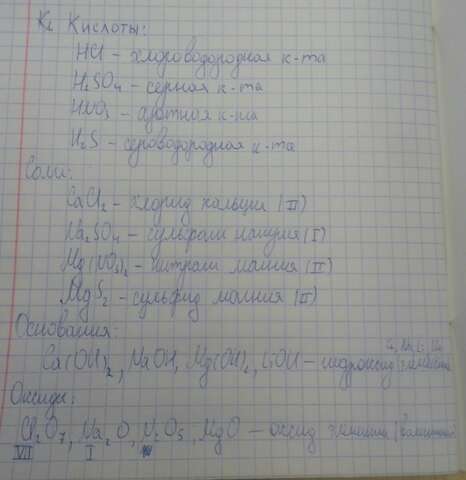 К. Кислоты:
HCl - хлороводородная к-та
H₂SO₄ - серная к-та
HNO₃ - азотная к-та
H₂S - сероводородная к-та
Соли:
CaCl₂ - хлорид кальция (II)
Na₂SO₄ - сульфат натрия (I)
Mg(NO₃)₂ - нитрат магния (II)
MgS₂ - сульфид магния (II)
Основания:
Ca(OH)₂, NaOH, Mg(OH)₂, LiOH - гидроксид
Оксиды:
Cl₂O₇, Na₂O, N₂O₅, MgO - оксид
VII I V